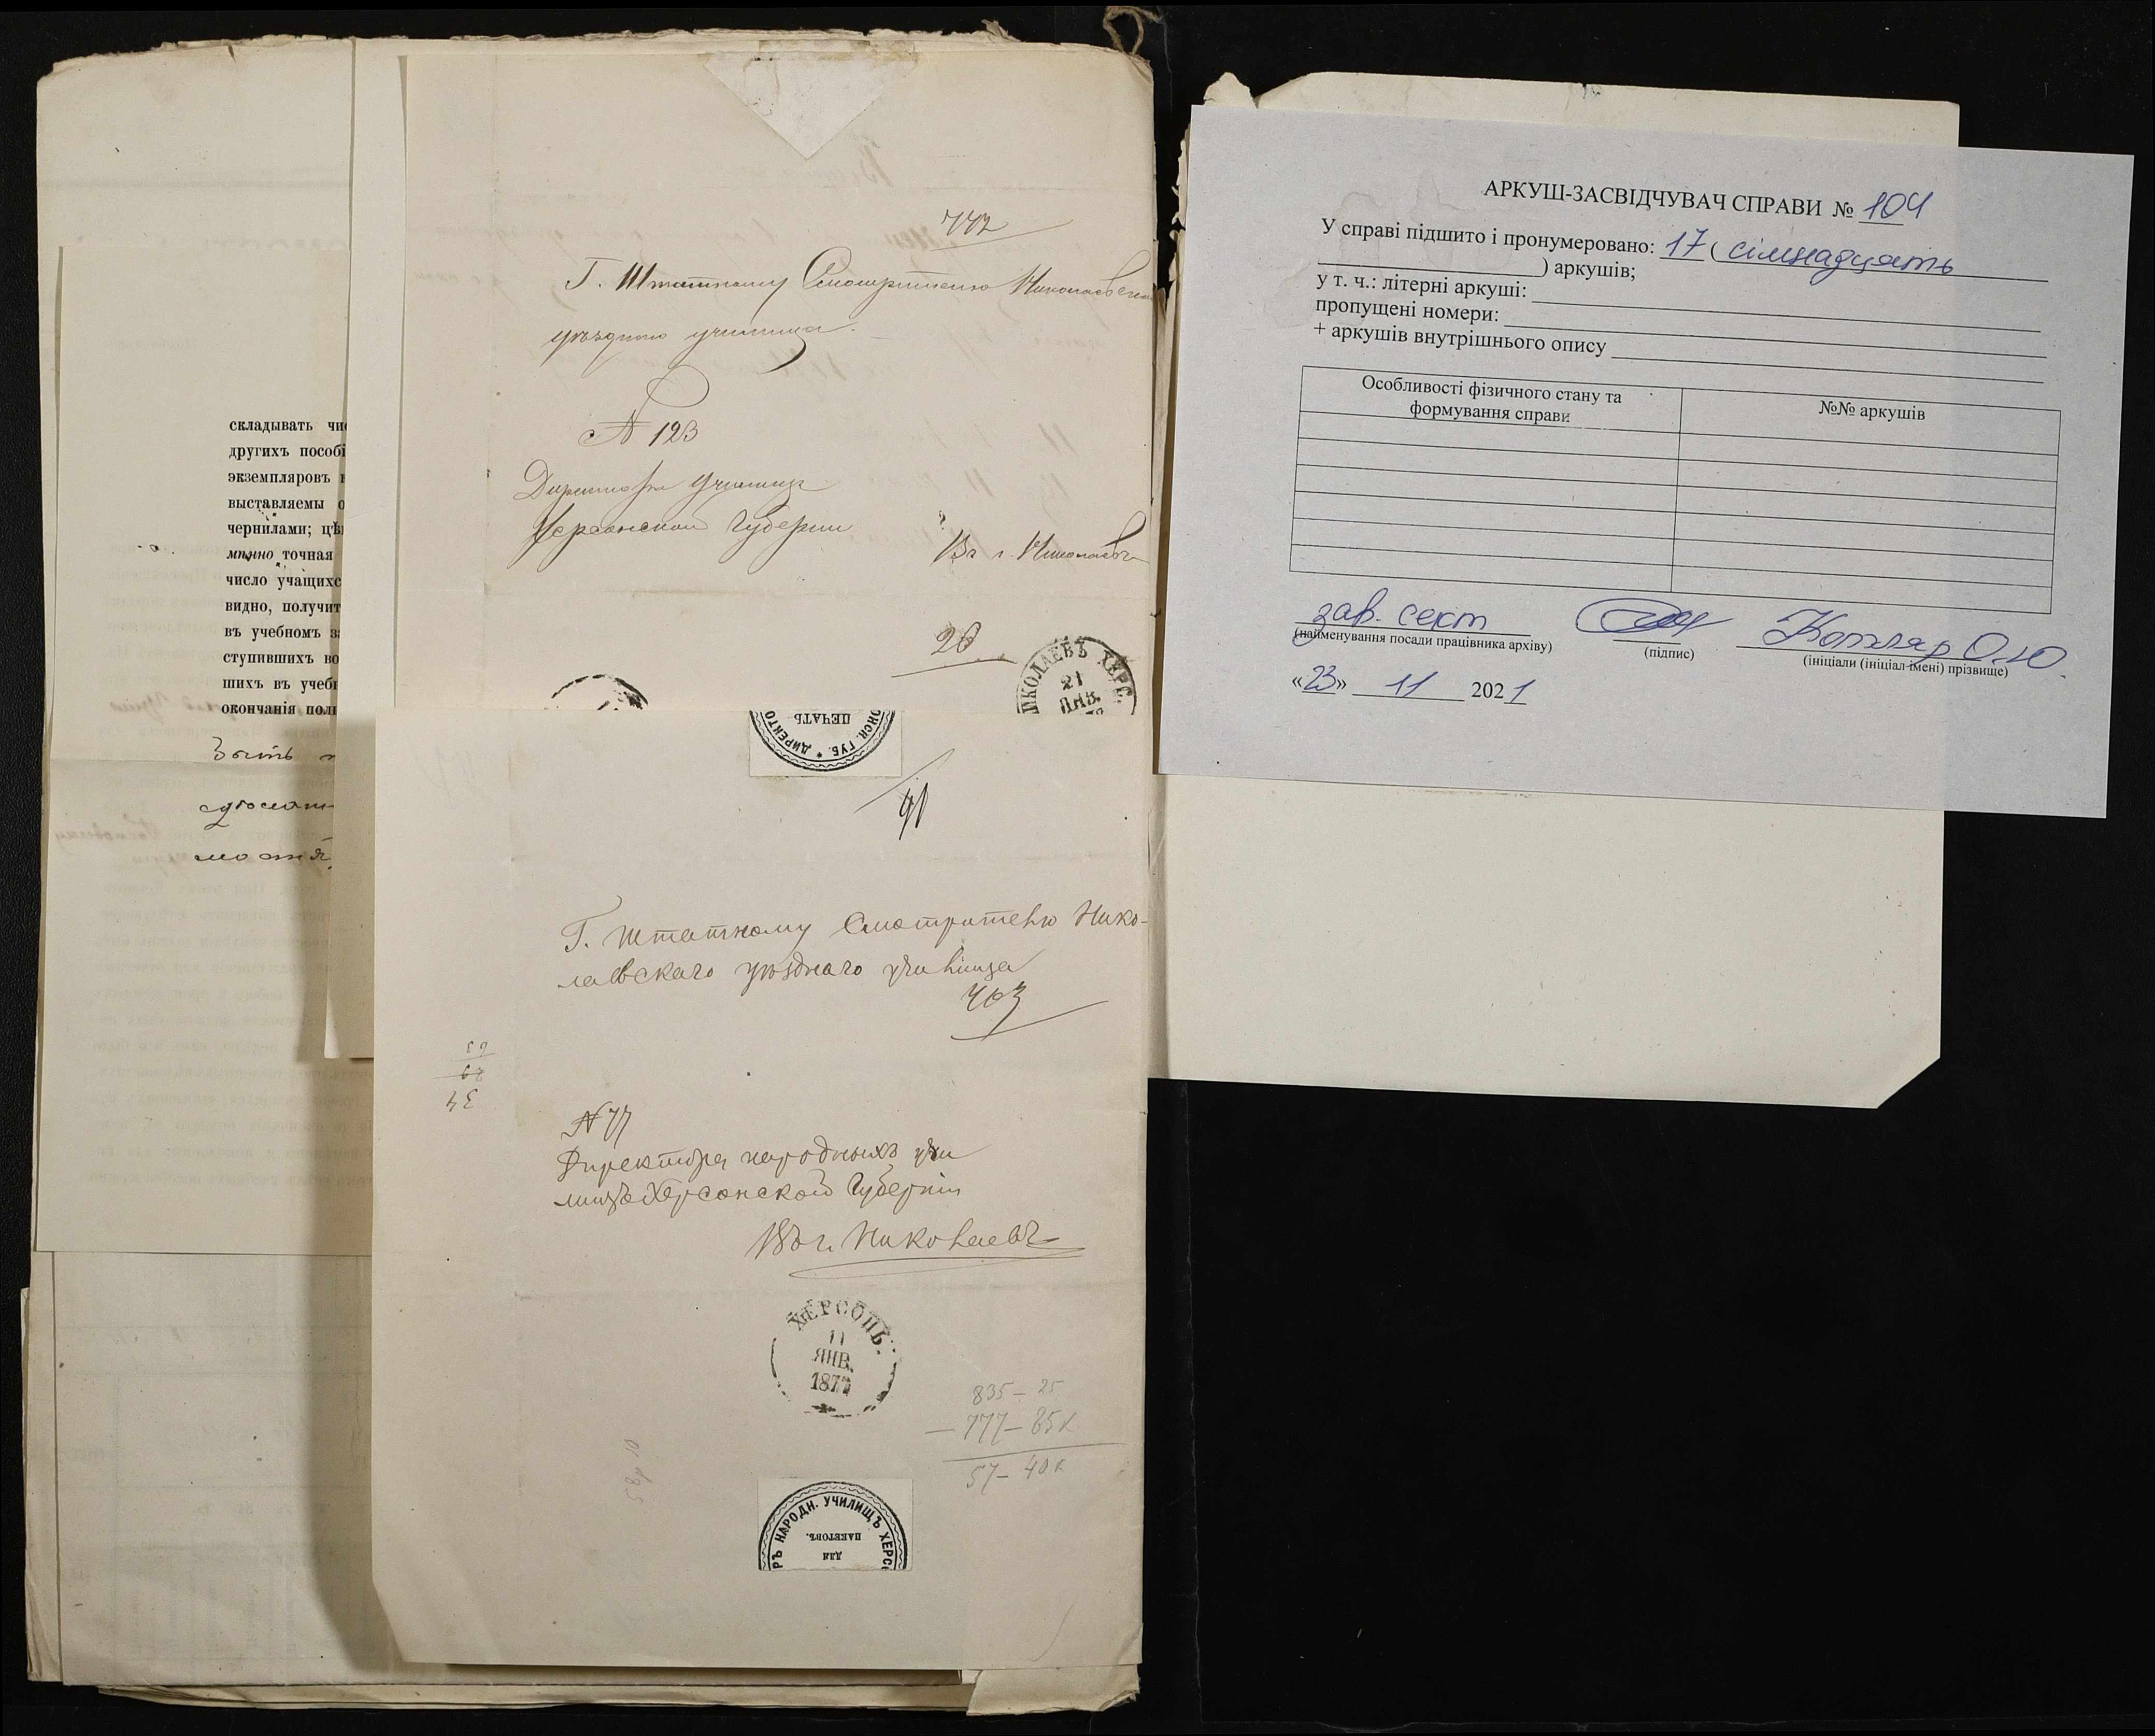 складывать
другихъ
экземпляровъ
выставляемы
чернилами;
точная
число учащихс
видно, получит
въ учебномъ
ступившихъ во
шихъ въ учеб
окончанія
Г. Штатному Смотрителю Николаевска
уѣзднаго училища.
№ 123
Директора училищъ
Херсонской Губерніи
Въ г. Николаевъ
20
НИКОЛАЕВЪ ХЕРС.
21
ЯНВ.
ОНСК. ГУБ. * ДИРЕКТО
ПЕЧАТЬ
Г. Штатному Смотрителю Нико-
лаевскаго уѣзднаго училища
463
34
№ 77
Директора народныхъ учи
лищъ Херсонской Губерніи
Въ г. Николаевъ
ХЕРСОНЪ.
11
ЯНВ.
1877
835 – 25
– 777 – 85 к
57 – 40 к
РЪ НАРОДН. УЧИЛИЩЪ ХЕРС
ПАКЕТОВЪ.
ДЛЯ
АРКУШ-ЗАСВІДЧУВАЧ СПРАВИ № 104
У справі підшито і пронумеровано: 17 ( сімнадцять
) аркушів;
у т. ч.: літерні аркуші:
пропущені номери:
+ аркушів внутрішнього опису
Особливості фізичного стану та
формування справи
№№ аркушів
зав. сект
(найменування посади працівника архіву)
(підпис)
Котляр О.Ю.
(ініціали (ініціал імені) прізвище)
«23» 11 2021